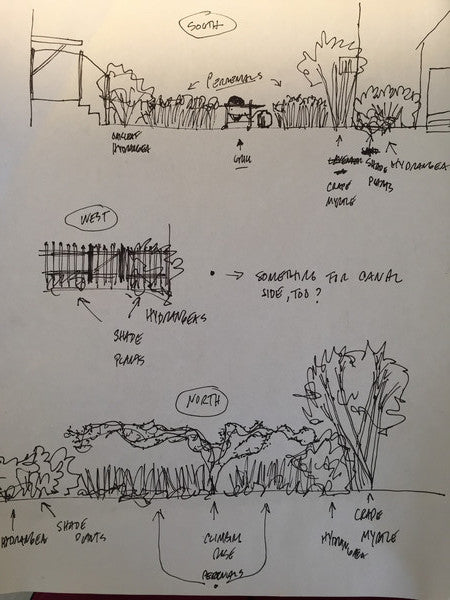 SOUTH
PERENNIALS
OAKLEAF
HYDRANGEA
GRILL
CRAPE
MYRTLE
SHADE
PLANTS
HYDRANGEA
WEST
HYDRANGEAS
SHADE
PLANTS
• → SOMETHING FOR CANAL
SIDE, TOO?
NORTH
HYDRANGEA
SHADE
PLANTS
CLIMBING
ROSE
PERENNIALS
HYDRANGEA
CRAPE
MYRTLE